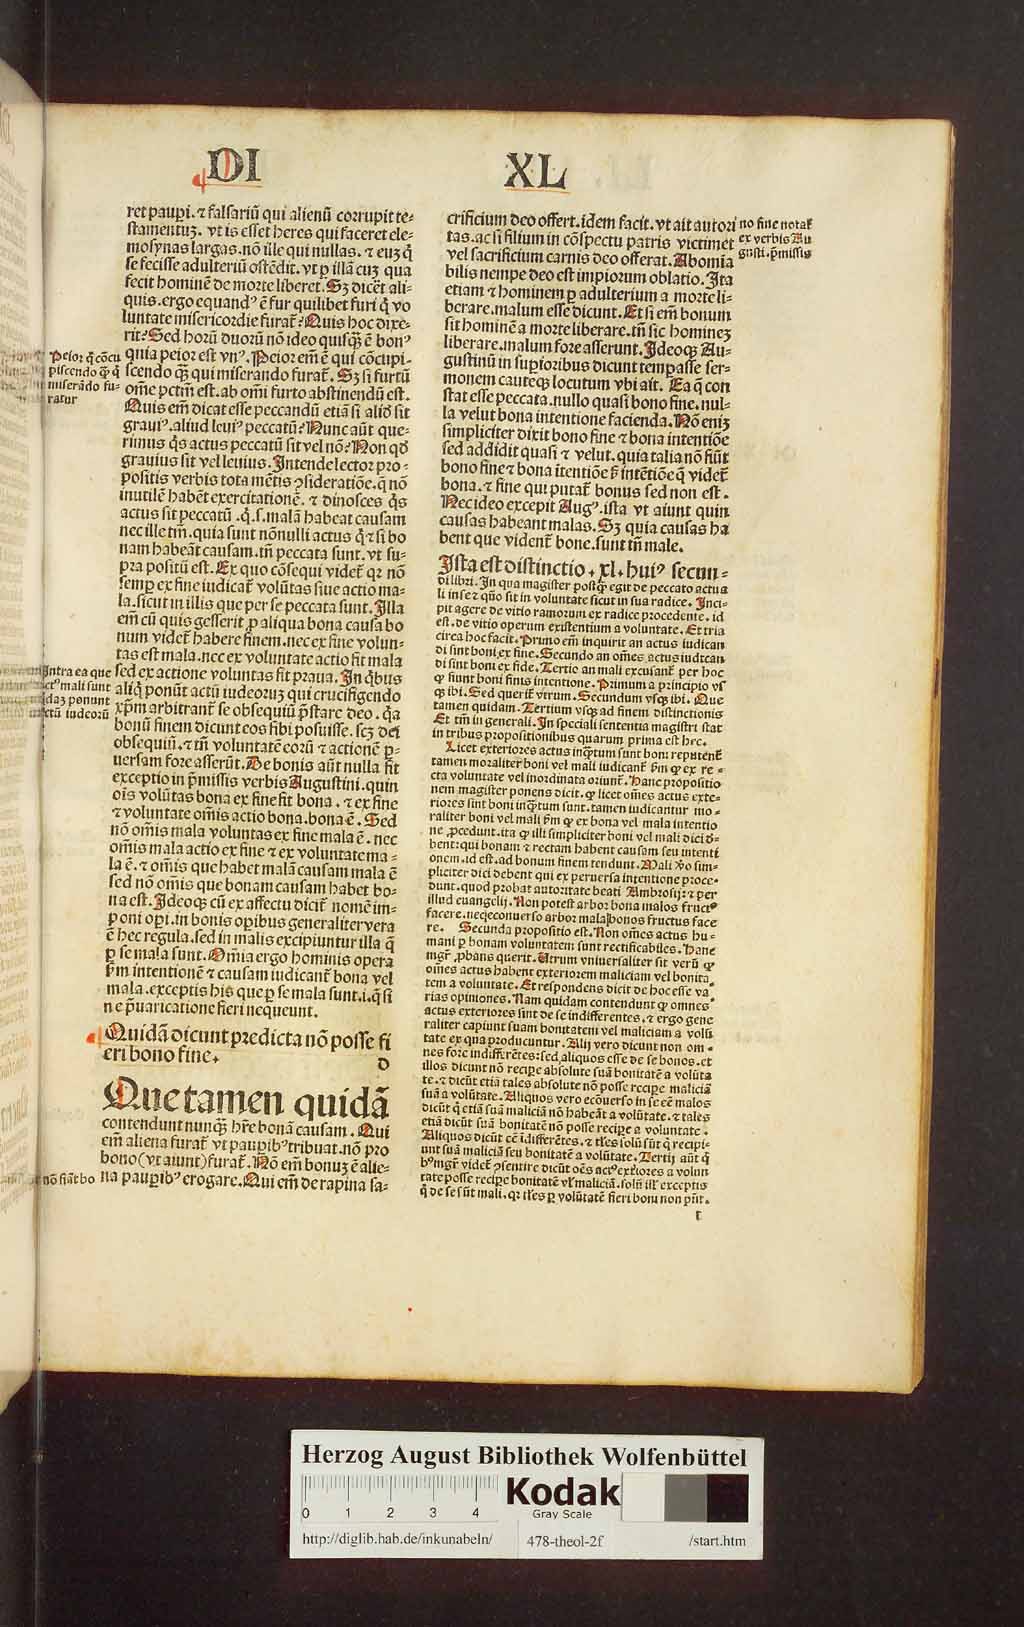 DI XL
ret paup̱i. ⁊ falsariū qui alienū corrupit te-
stamentuꝫ. vt is esset heres qui faceret ele-
mosynas largas. nō ille qui nullas. ⁊ euꝫ q̄
se fecisse adulteriū ostēdit. vt ꝑ illā cuꝫ qua
fecit hominē de morte liberet̄. Sꝫ dicet ali-
quis. ergo equandꝰ ē fur quilibet furi q̄ vo
luntate misericordie furat̄? Quis hoc dixe-
rit? Sed horū duorū nō ideo quisqꝫ ē bonꝰ
quia peior est vnꝰ. Peior em̄ ē qui cōcupi-
scendo qꝫ qui miserando furat̄. Sꝫ si furtū
om̄e pctm̄ est. ab om̄i furto abstinendū est.
Quis em̄ dicat esse peccandū etiā si aliđ sit
grauiꝰ. aliud leuiꝰ peccatū? Nunc aūt que-
rimus q̄s actus peccatū sit vel nō? Non qđ
grauius sit vel leuius. Intende lector pro-
positis verbis tota mētis ꝯsideratiōe. q̄ nō
inutilē habēt exercitationē. ⁊ dinosces q̄s
actus sit peccatū. q̄. s. malā habeat causam
nec ille tm̄. quia sunt nōnulli actus q̄ ⁊ si bo
nam habeāt causam. tn̄ peccata sunt. vt su-
pra positū est. Ex quo cōsequi videt̄ qꝛ nō
semꝑ ex fine iudicat̄ volūtas siue actio ma-
la. sicut in illis que per se peccata sunt. Illa
em̄ cū quis gesserit ꝓ aliqua bona causa bo
num videt̄ habere finem. nec ex fine volun-
tas est mala. nec ex voluntate actio fit mala
sed ex actione voluntas fit praua. In q̄bus
aliq̄ ponūt actū iudeoruꝫ qui crucifigendo
xp̄m arbitrant̄ se obsequiū p̄stare deo. q̄a
bonū finem dicunt eos sibi posuisse. scꝫ dei
obsequiū. ⁊ tn̄ voluntatē eorū ⁊ actionē ꝑ-
uersam fore asserūt. De bonis aūt nulla fit
exceptio in p̄missis verbis Augustini. quin
oīs volūtas bona ex fine fit bona. ⁊ ex fine
⁊ voluntate om̄is actio bona. bona ē. Sed
nō om̄is mala voluntas ex fine mala ē. nec
om̄is mala actio ex fine ⁊ ex voluntate ma-
la ē. ⁊ om̄is que habet malā causam mala ē
sed nō om̄is que bonam causam habet bo-
na est. Ideoqꝫ cū ex affectu dicit̄ nomē im-
poni opi. in bonis opibus generaliter vera
ē hec regula. sed in malis excipiuntur illa q̄
ꝑ se mala sunt. Om̄ia ergo hominis opera
ẜm intentionē ⁊ causam iudicant̄ bona vel
mala. exceptis his que ꝑ se mala sunt. i. q̄ si
ne p̄uaricatione fieri nequeunt.
Quidā dicunt predicta nō posse fi
eri bono fine. D
Que tamen quidā
contendunt nunqꝫ hr̄e bonā causam. Qui
em̄ aliena furat̄ vt paupibꝰ tribuat. nō pro
bono (vt aiunt) furat̄. Nō em̄ bonuꝫ ē alie-
na paupibꝰ erogare. Qui em̄ de rapina sa-
Peior q̄ cōcu
piscendo qꝫ q̄
miserādo fu-
ratur
Intra ea que
mali sunt
ponunt
iudeorū
nō fiāt bo
crificium deo offert. idem facit. vt ait autori
tas. ac si filium in cōspectu patris victimet
vel sacrificium carnis deo offerat. Abomia
bilis nempe deo est impiorum oblatio. Ita
etiam ⁊ hominem ꝑ adulterium a morte li-
berare. malum esse dicunt. Et si em̄ bonum
sit hominē a morte liberare. tn̄ sic homineꝫ
liberare. malum fore asserunt. Ideoqꝫ Au-
gustinū in supioribus dicunt tempasse ser-
monem cauteqꝫ locutum vbi ait. Ea q̄ con
stat esse peccata. nullo quasi bono fine. nul-
la velut bona intentione facienda. Nō eniꝫ
simpliciter dixit bono fine ⁊ bona intentiōe
sed addidit quasi ⁊ velut. quia talia nō fiūt
bono fine ⁊ bona ītentiōe ẜ intētiōe q̄ videt̄
bona. ⁊ fine qui putat̄ bonus sed non est.
Nec ideo excepit Augꝰ. ista vt aiunt quin
causas habeant malas. Sꝫ quia causas ha
bent que vident̄ bone. sunt tn̄ male.
no fine notat̄
ex verbis Au
gusti. p̄missis
Ista est distinctio. xl. huiꝰ secun-
di libri. In qua magister postq̄ egit de peccato actua
li in se ⁊ q̄ūo sit in voluntate sicut in sua radice. Inci-
pit agere de vitio ramorum ex radice procedente. id
est. de vitio operum existentium a voluntate. Et tria
circa hoc facit. Primo em̄ inquirit an actus iudican
di sunt boni ex fine. Secundo an om̄es actus iudican
di sint boni ex fide. Tertio an mali excusant̄ per hoc
ꝙ fiunt boni finis intentione. Primum a principio vsꝗ
ꝗ ibi. Sed querit̄ vtrum. Secundum vsqꝫ ibi. Que
tamen quidam. Tertium vsqꝫ ad finem distinctionis
Et tm̄ in generali. In speciali sententia magistri stat
in tribus propositionibus quarum prima est hec.
Licet exteriores actus inq̄tum sunt boni reputent̄
tamen moraliter boni vel mali iudicant̄ ẜm ꝙ ex re-
cta voluntate vel inordinata oriunt̄. Hanc propositio
nem magister ponens dicit. ꝙ licet om̄es actus exte-
riores sint boni inq̄tum sunt. tamen iudicantur mo-
raliter boni vel mali ẜm ꝙ ex bona vel mala intentio
ne ꝓcedunt. ita ꝙ illi simpliciter boni vel mali dici de-
bent: qui bonam ⁊ rectam habent causam seu intenti
onem. id est. ad bonum finem tendunt. Mali v̄o sim-
pliciter dici debent qui ex peruersa intentione proce-
dunt. quod probat autoritate beati Ambrosij: ⁊ per
illud euangelij. Non potest arbor bona malos fructꝰ
facere. neqꝫ econuerso arbor mala bonos fructus face
re. Secunda propositio est. Non om̄es actus hu-
mani ꝑ bonam voluntatem sunt rectificabiles. Hanc
mgr̄ ꝓbans querit. Utrum vniuersaliter sit verū ꝙ
om̄es actus habent exteriorem maliciam vel bonita-
tem a voluntate. Et respondens dicit de hoc esse va-
rias opiniones. Nam quidam contendunt ꝙ omnes
actus exteriores sint de se indifferentes. ⁊ ergo gene
raliter capiunt suam bonitatem vel maliciam a volū
tate ex qua producuntur. Alij vero dicunt non om-
nes fore indifferētes: sed aliquos esse de se bonos. et
illos dicunt nō recipe absolute suā bonitatē a volūta
te. ⁊ dicūt etiā tales absolute nō posse recipe maliciā
suā a volūtate. Aliquos vero ecōuerso in se eē malos
dicūt q̄ etiā suā maliciā nō habeāt a volūtate. ⁊ tales
etiā dicūt suā bonitatē nō posse recipe a voluntate.
Aliquos dicūt eē īdifferētes. ⁊ tles solū sūt q̄ recipi-
unt suā maliciā seu bonitatē a volūtate. Tertij aūt q̄
bꝰ mgr̄ videt̄ ꝯsentire dicūt oēs actꝰ exteriores a volun
tate posse recipe bonitatē vl maliciā. solū ill exceptis
q̄ de se sūt mali. qꝛ tles ꝑ volūtatē fieri boni non p̄nt.
r
Herzog August Bibliothek Wolfenbüttel
0 1 2 3 4
Kodak
Gray Scale
http://diglib.hab.de/inkunabeln/ 478-theol-2f /start.htm